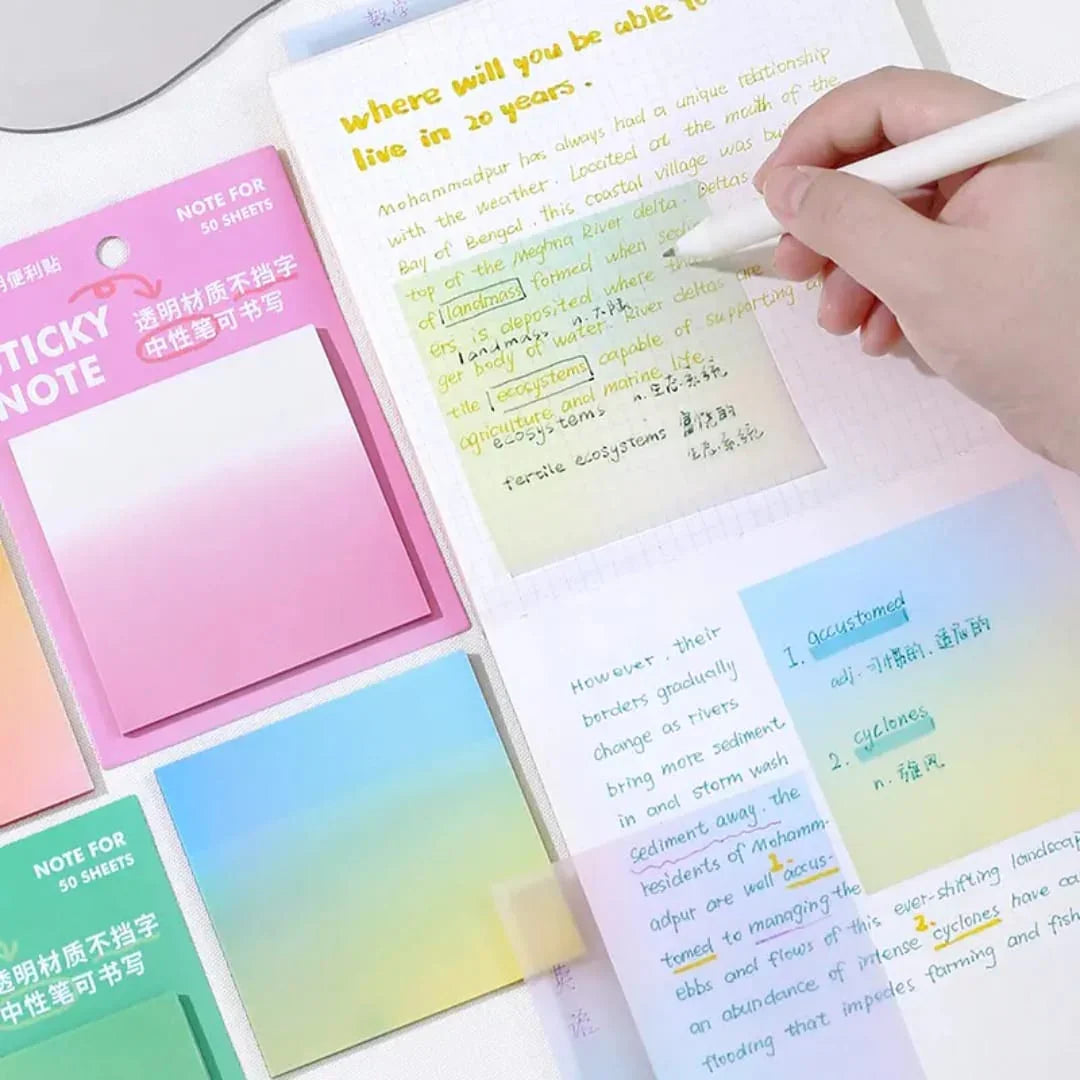 数学
where will you be able to
live in 20 years.
Mohammadpur has always had a unique relationship
with the weather. Located at the mouth of the
Bay of Bengal. this coastal village was
top of the Meghna River delta. Deltas
of landmass formed when
ers is deposited where
landmass n.大陆
ger body of water. River deltas are
tile ecosystems capable of supporting
agriculture and marine life.
ecosystems n.生态系统
fertile ecosystems
生态系统
NOTE FOR
50 SHEETS
便利點
透明材质不挡字
中性笔可书写
STICKY
NOTE
However, their
borders gradually
change as rivers
bring more sediment
in and storm wash
sediment away. the
residents of Mohamm-
1.
adpur are well accus-
tomed to managing the
ebbs and flows of this ever-shifting
2.
an abundance of intense cyclones have
flooding that impedes farming and
1. accustomed
adj.习惯的.适应的
2. cyclones
n.旋风
NOTE FOR
50 SHEETS
透明材质不挡字
中性笔可书写
英
语